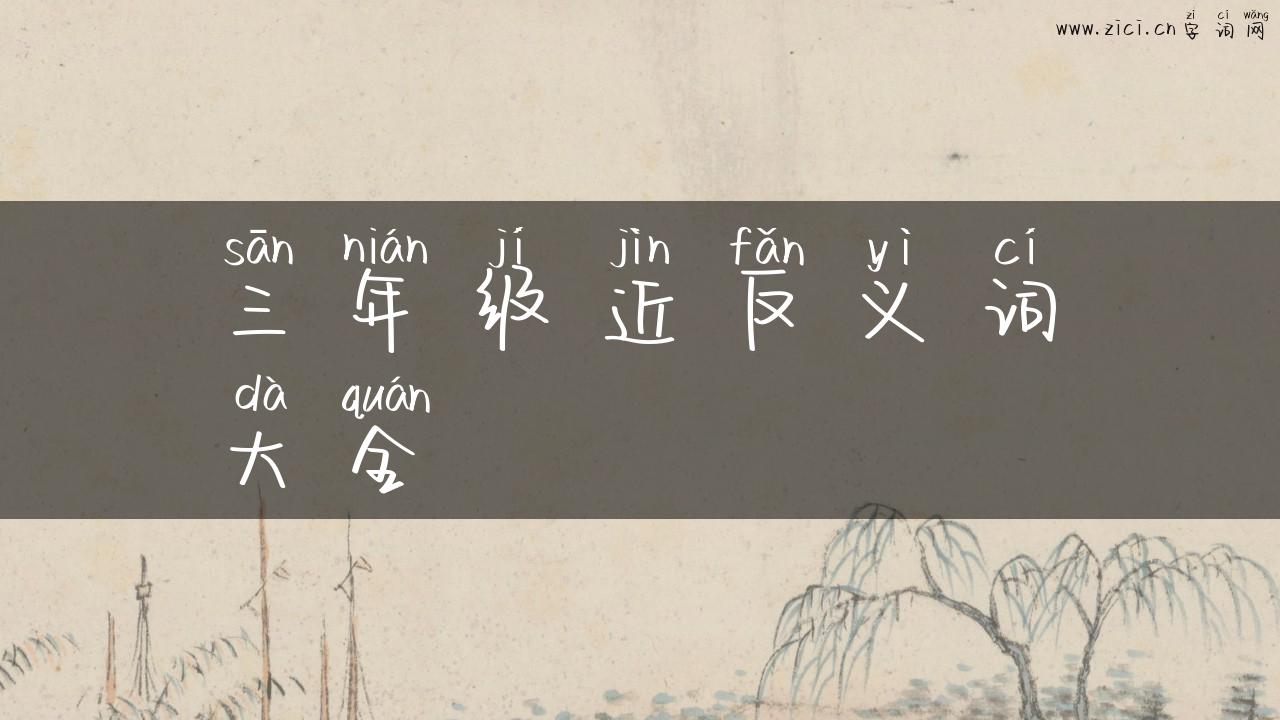 zì cí wǎng
www.zici.cn 字词网
sān nián jí jìn fǎn yì cí
三年级近反义词
dà quán
大全